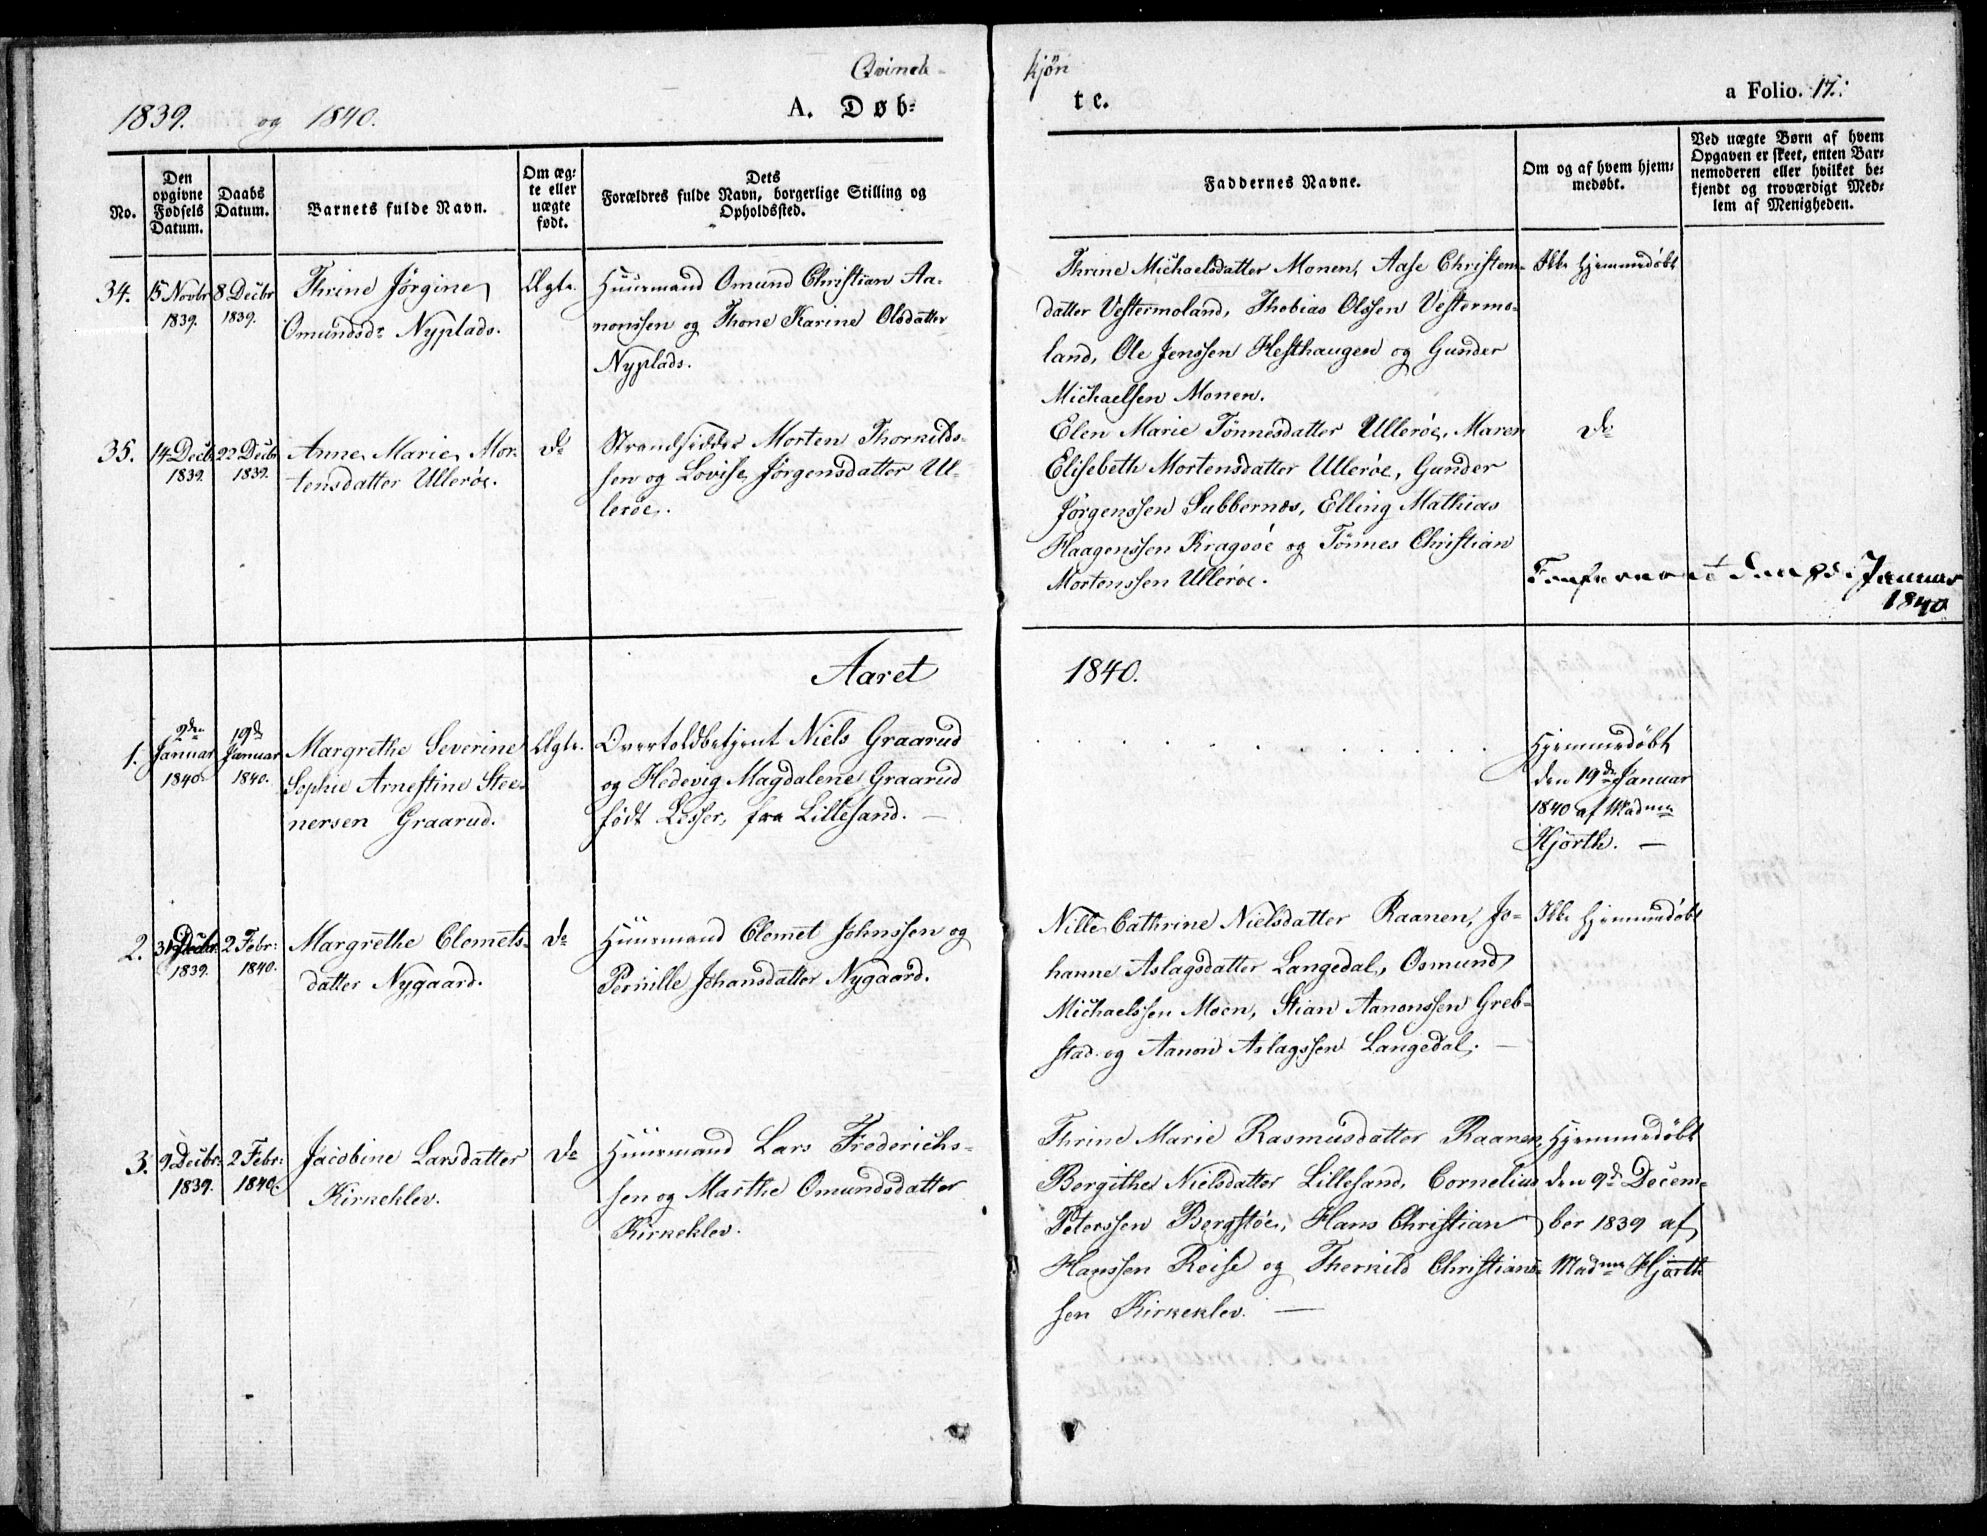 Qvinde-
kjøn
1839. og 1840.
A. Døb-
te.
a Folio. 17.
No.
Den opgivne Fødsels Datum.
Daabs Datum.
Barnets fulde Navn.
Om æg- te eller uægte født.
Dets Forældres fulde Navn, borgerlige Stilling og Opholdssted.
Faddernes Navne.
Om og af hvem hjem- medøbt.
Ved uægte Børn af hvem Opgaven er skeet, enten Bar- nemoderen eller hvilket be- kjendt og troværdigt Med- lem af Menigheden.
34.
15 Novbr 1839.
8 Decbr 1839.
Thrine Jørgine
Omundsdr Nyplads.
Ægte.
Huusmand Omund Christian Aa-
nonssen og Thone Karine Olsdatter
Nyplads.
Thrine Michaelsdatter Monen, Aase Christens-
datter Vestermoland, Thobias Olssen Vestermo-
land, Ole Jenssen Hesthaugen og Gunder
Michaelsen Monen.
Ikke hjemmedøbt
35.
14 Decbr 1839.
22 Decbr 1839.
Anne Marie Mor-
tensdatter Ullerøe.
do
Strandsidder Morten Thorkilds-
sen og Lovise Jørgensdatter Ul-
lerøe.
Elen Marie Tønnesdatter Ullerøe, Maren
Elisebeth Mortensdatter Ullerøe, Gunder
Jørgenssen Lubbernes, Elling Mathias
Haagenssen Kragøe og Tønnes Christian
Mortenssen Ullerøe.
do
Januar
1840
Aaret
1840.
1.
2den Januar 1840
19de Januar 1840.
Margrethe Severine
Sophie Arnestine Stee-
nersen Graarud.
Ægte.
Overtoldbetjent Niels Graarud
og Hedevig Magdalene Graarud
født Lesser, fra Lillesand. —
Hjemmedøbt
den 19de Januar
1840 af Madme
Hjorth. —
2.
31 Decbr. 1839.
2 Febr: 1840.
Margrethe Clemets-
datter Nygaard.
do
Huusmand Clemet Johnssen og
Pernille Johansdatter Nygaard.
Nille Cathrine Nielsdatter Raanen, Jo-
hanne Aslagsdatter Langedal, Osmund
Michaelssen Moen, Stian Aanonssen Greb-
stad og Aanon Aslagssen Langedal. —
Ikke hjemmedøbt
3.
9 Decbr: 1839.
2 Febr: 1840.
Jacobine Larsdatter
Kirkeklev.
do
Huusmand Lars Frederichs-
sen og Marthe Omundsdatter
Kirkeklev.
Thrine Marie Rasmusdatter Raanen,
Bergithe Nielsdatter Lillesand, Cornelius
Peterssen Bergstøe, Hans Christian
Hanssen Reise og Therkild Christians-
sen Kirkeklev. —
Hjemmedøbt
den 9de Decem-
ber 1839 af
Madme Hjorth